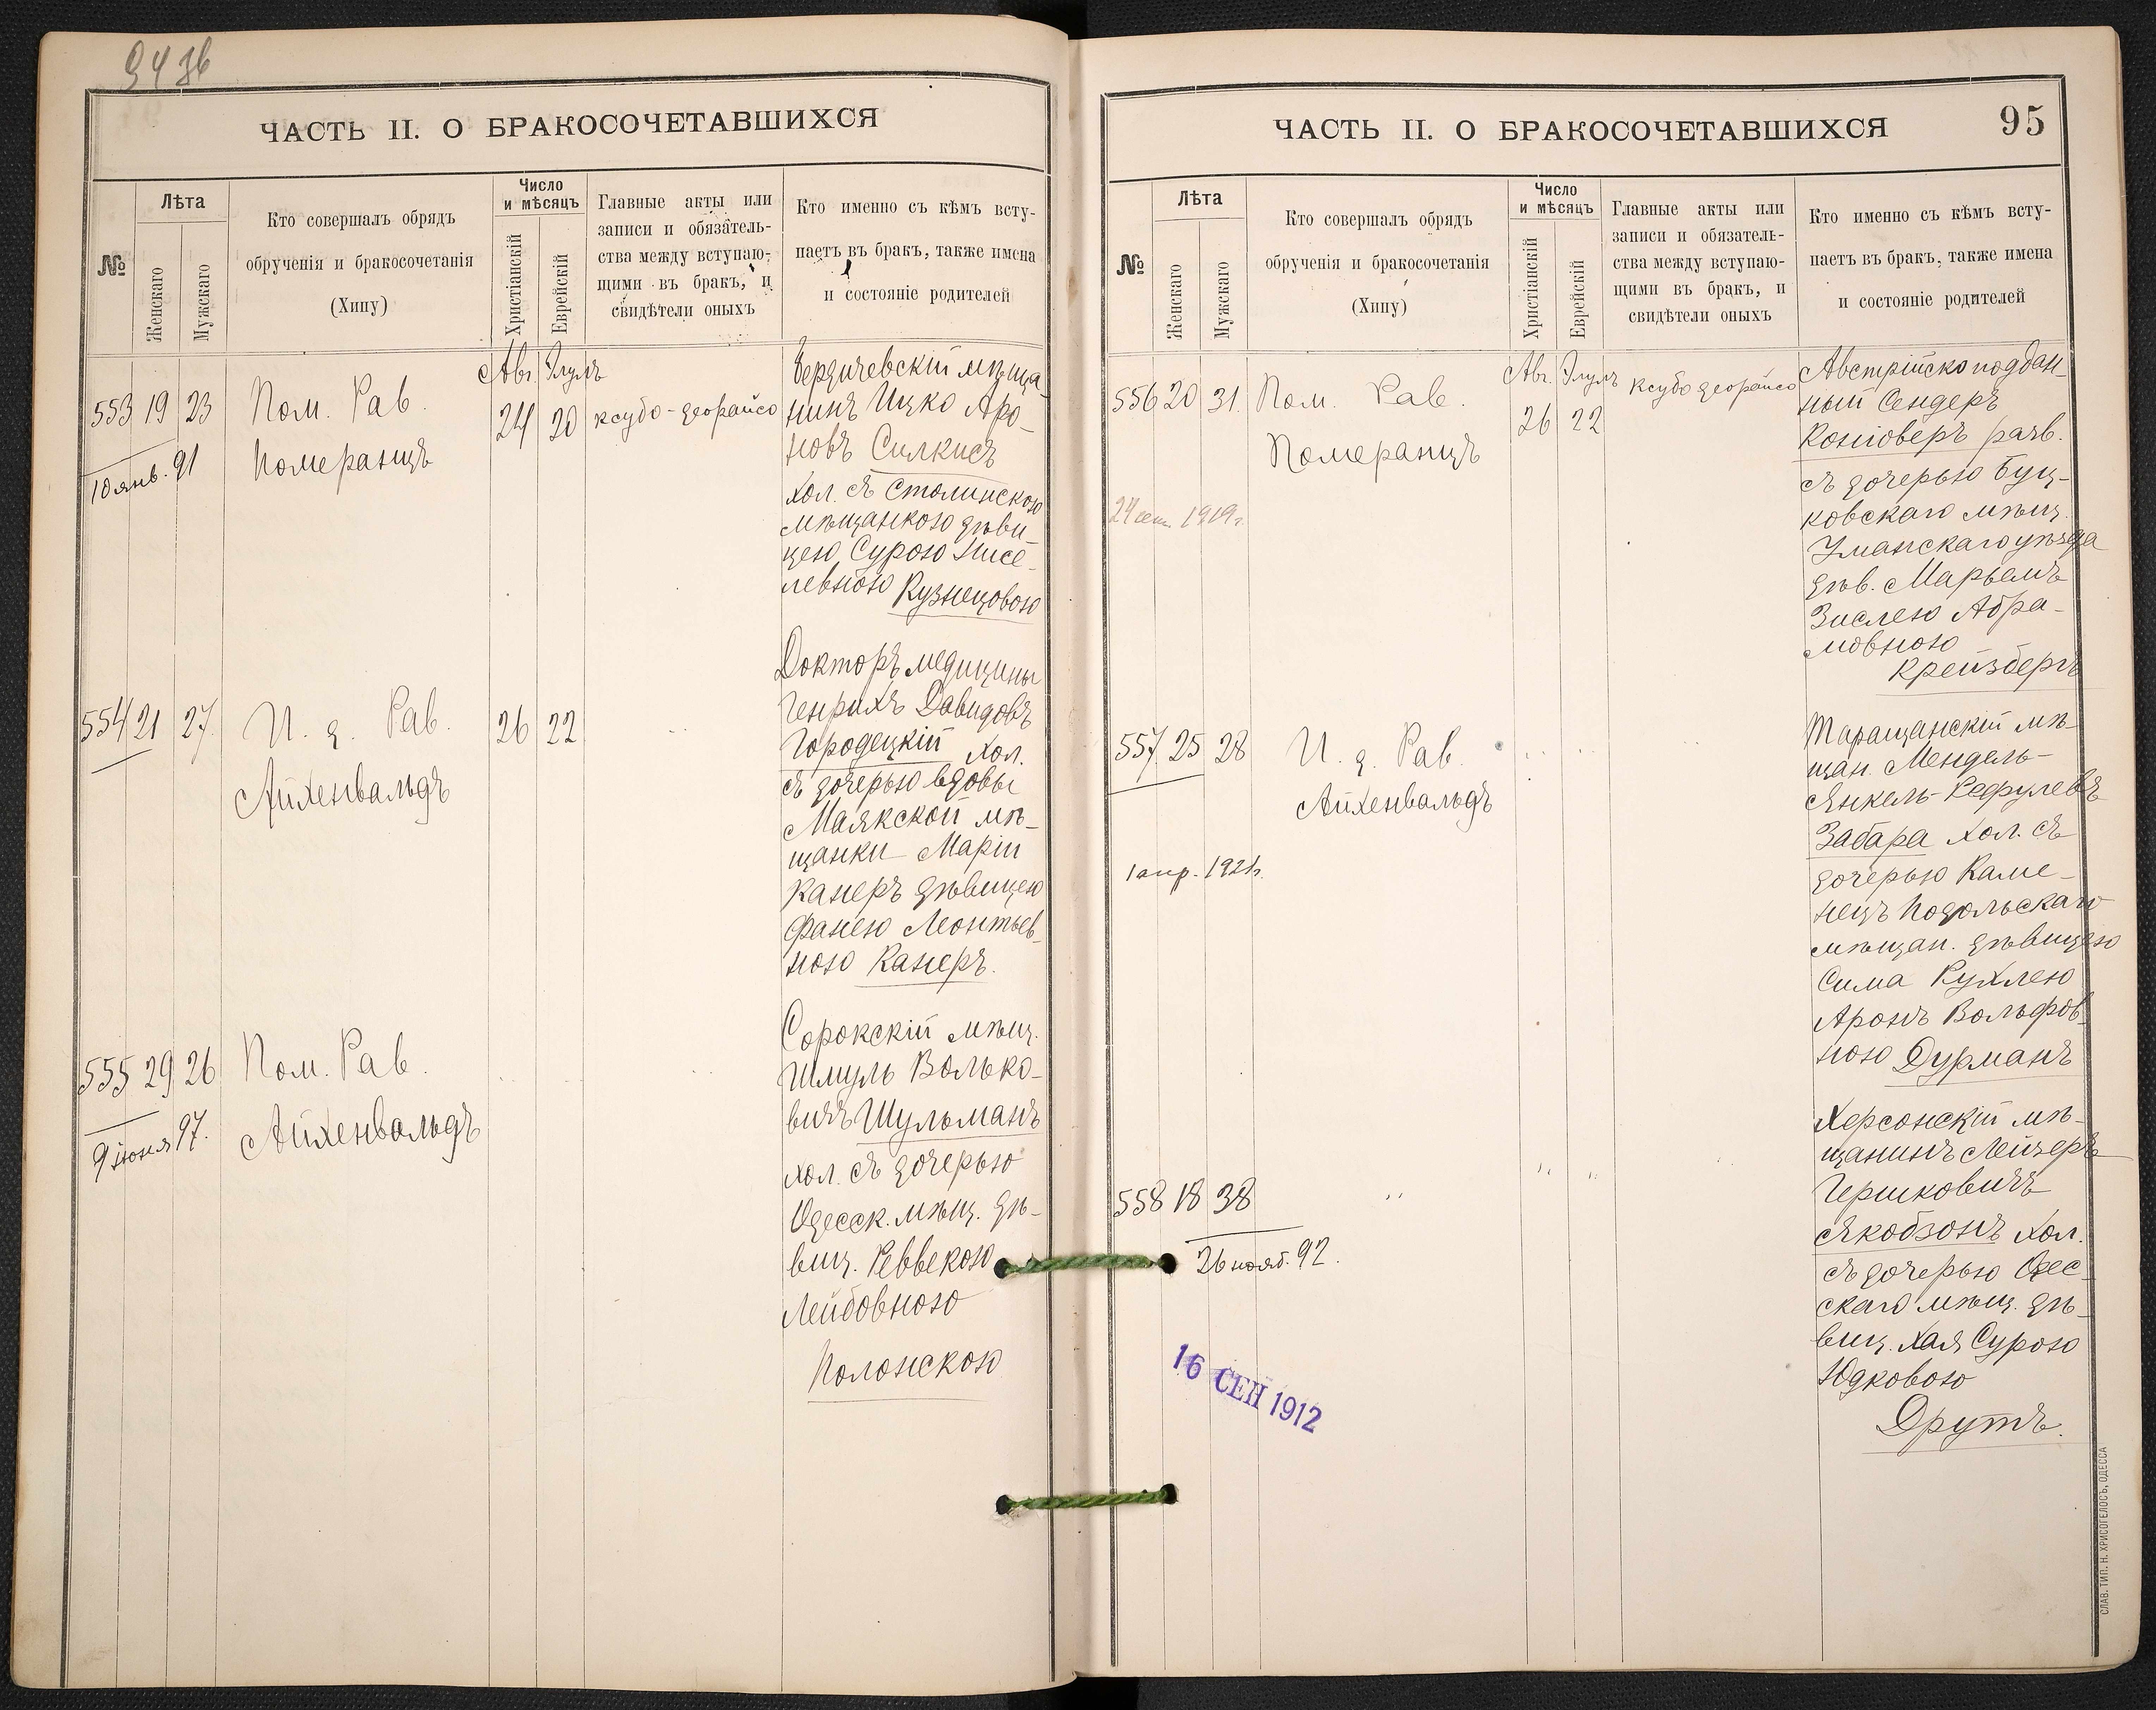 94 зб
ЧАСТЬ II. О БРАКОСОЧЕТАВШИХСЯ
№
Лѣта
Женскаго
Мужскаго
Кто совершалъ обрядъ
обрученія и бракосочетанія
(Хипу)
Число
и мѣсяцъ
Христіанскій
Еврейскій
Главные акты или
записи и обязатель-
ства между вступаю-
щими въ бракъ, и
свидѣтели оныхъ
Кто именно съ кѣмъ всту-
паетъ въ бракъ, также имена
и состояніе родителей
553 19 23
10 янв. 91
Пом. Рав.
Померанцъ
Авг. Элулъ
24 20
ксубо-деорайсо
Бердичевскій мѣща-
нинъ Ицко Аро-
новъ Силкисъ
хол. съ Столинскою
мѣщанкою дѣви-
цею Сурою Нисе-
левною Кузнецовою
554 21 27
И. д. Рав.
Айхенвальдъ
26 22
Докторъ медицины
Генрихъ Давидовъ
Городецкій хол.
съ дочерью вдовы
Маякской мѣ-
щанки Маріи
Канеръ дѣвицею
Фанею Леонтьев-
ною Канеръ.
555 29 26
9 іюня 97.
Пом. Рав.
Айхенвальдъ
Сорокскій мѣщ.
Шмуль Волько-
вичъ Шульманъ
хол. съ дочерью
Одесск. мѣщ. дѣ-
виц. Реввекою
Лейбовною
Полонскою
ЧАСТЬ II. О БРАКОСОЧЕТАВШИХСЯ
95
№
Лѣта
Женскаго
Мужскаго
Кто совершалъ обрядъ
обрученія и бракосочетанія
(Хипу)
Число
и мѣсяцъ
Христіанскій
Еврейскій
Главные акты или
записи и обязатель-
ства между вступаю-
щими въ бракъ, и
свидѣтели оныхъ
Кто именно съ кѣмъ всту-
паетъ въ бракъ, также имена
и состояніе родителей
556 20 31.
24 сент. 1919 г.
Пом. Рав.
Померанцъ
Авг. Элулъ
26 22
ксубо деорайсо
Австрійско поддан-
ный Сендеръ
Конговеръ разв.
съ дочерью Буц-
ковскаго мѣщ.
Уманскаго уѣзда
дѣв. Марьемъ
Зислею Абра-
мовною
Крейзбергъ
557 25 28
1 апр. 1921 г.
И. д. Рав.
Айхенвальдъ
" "
Таращанскій мѣ-
щан. Мендель-
Янкель-Рефулевъ
Забара хол. съ
дочерью Каме-
нецъ Подольскаго
мѣщан. дѣвицею
Сима Рухлею
Аронъ Вольфов-
ною Дурманъ
558 18 38
26 нояб. 92.
"
" "
Херсонскій мѣ-
щанинъ Лейзеръ
Гершковичъ
Якобзонъ хол.
съ дочерью Одес-
скаго мѣщ. дѣ-
виц. Хая Сурою
Юдковою
Друтъ.
16 СЕН 1912
СЛАВ. ТИП. Н. ХРИСОГЕЛОСЪ, ОДЕССА